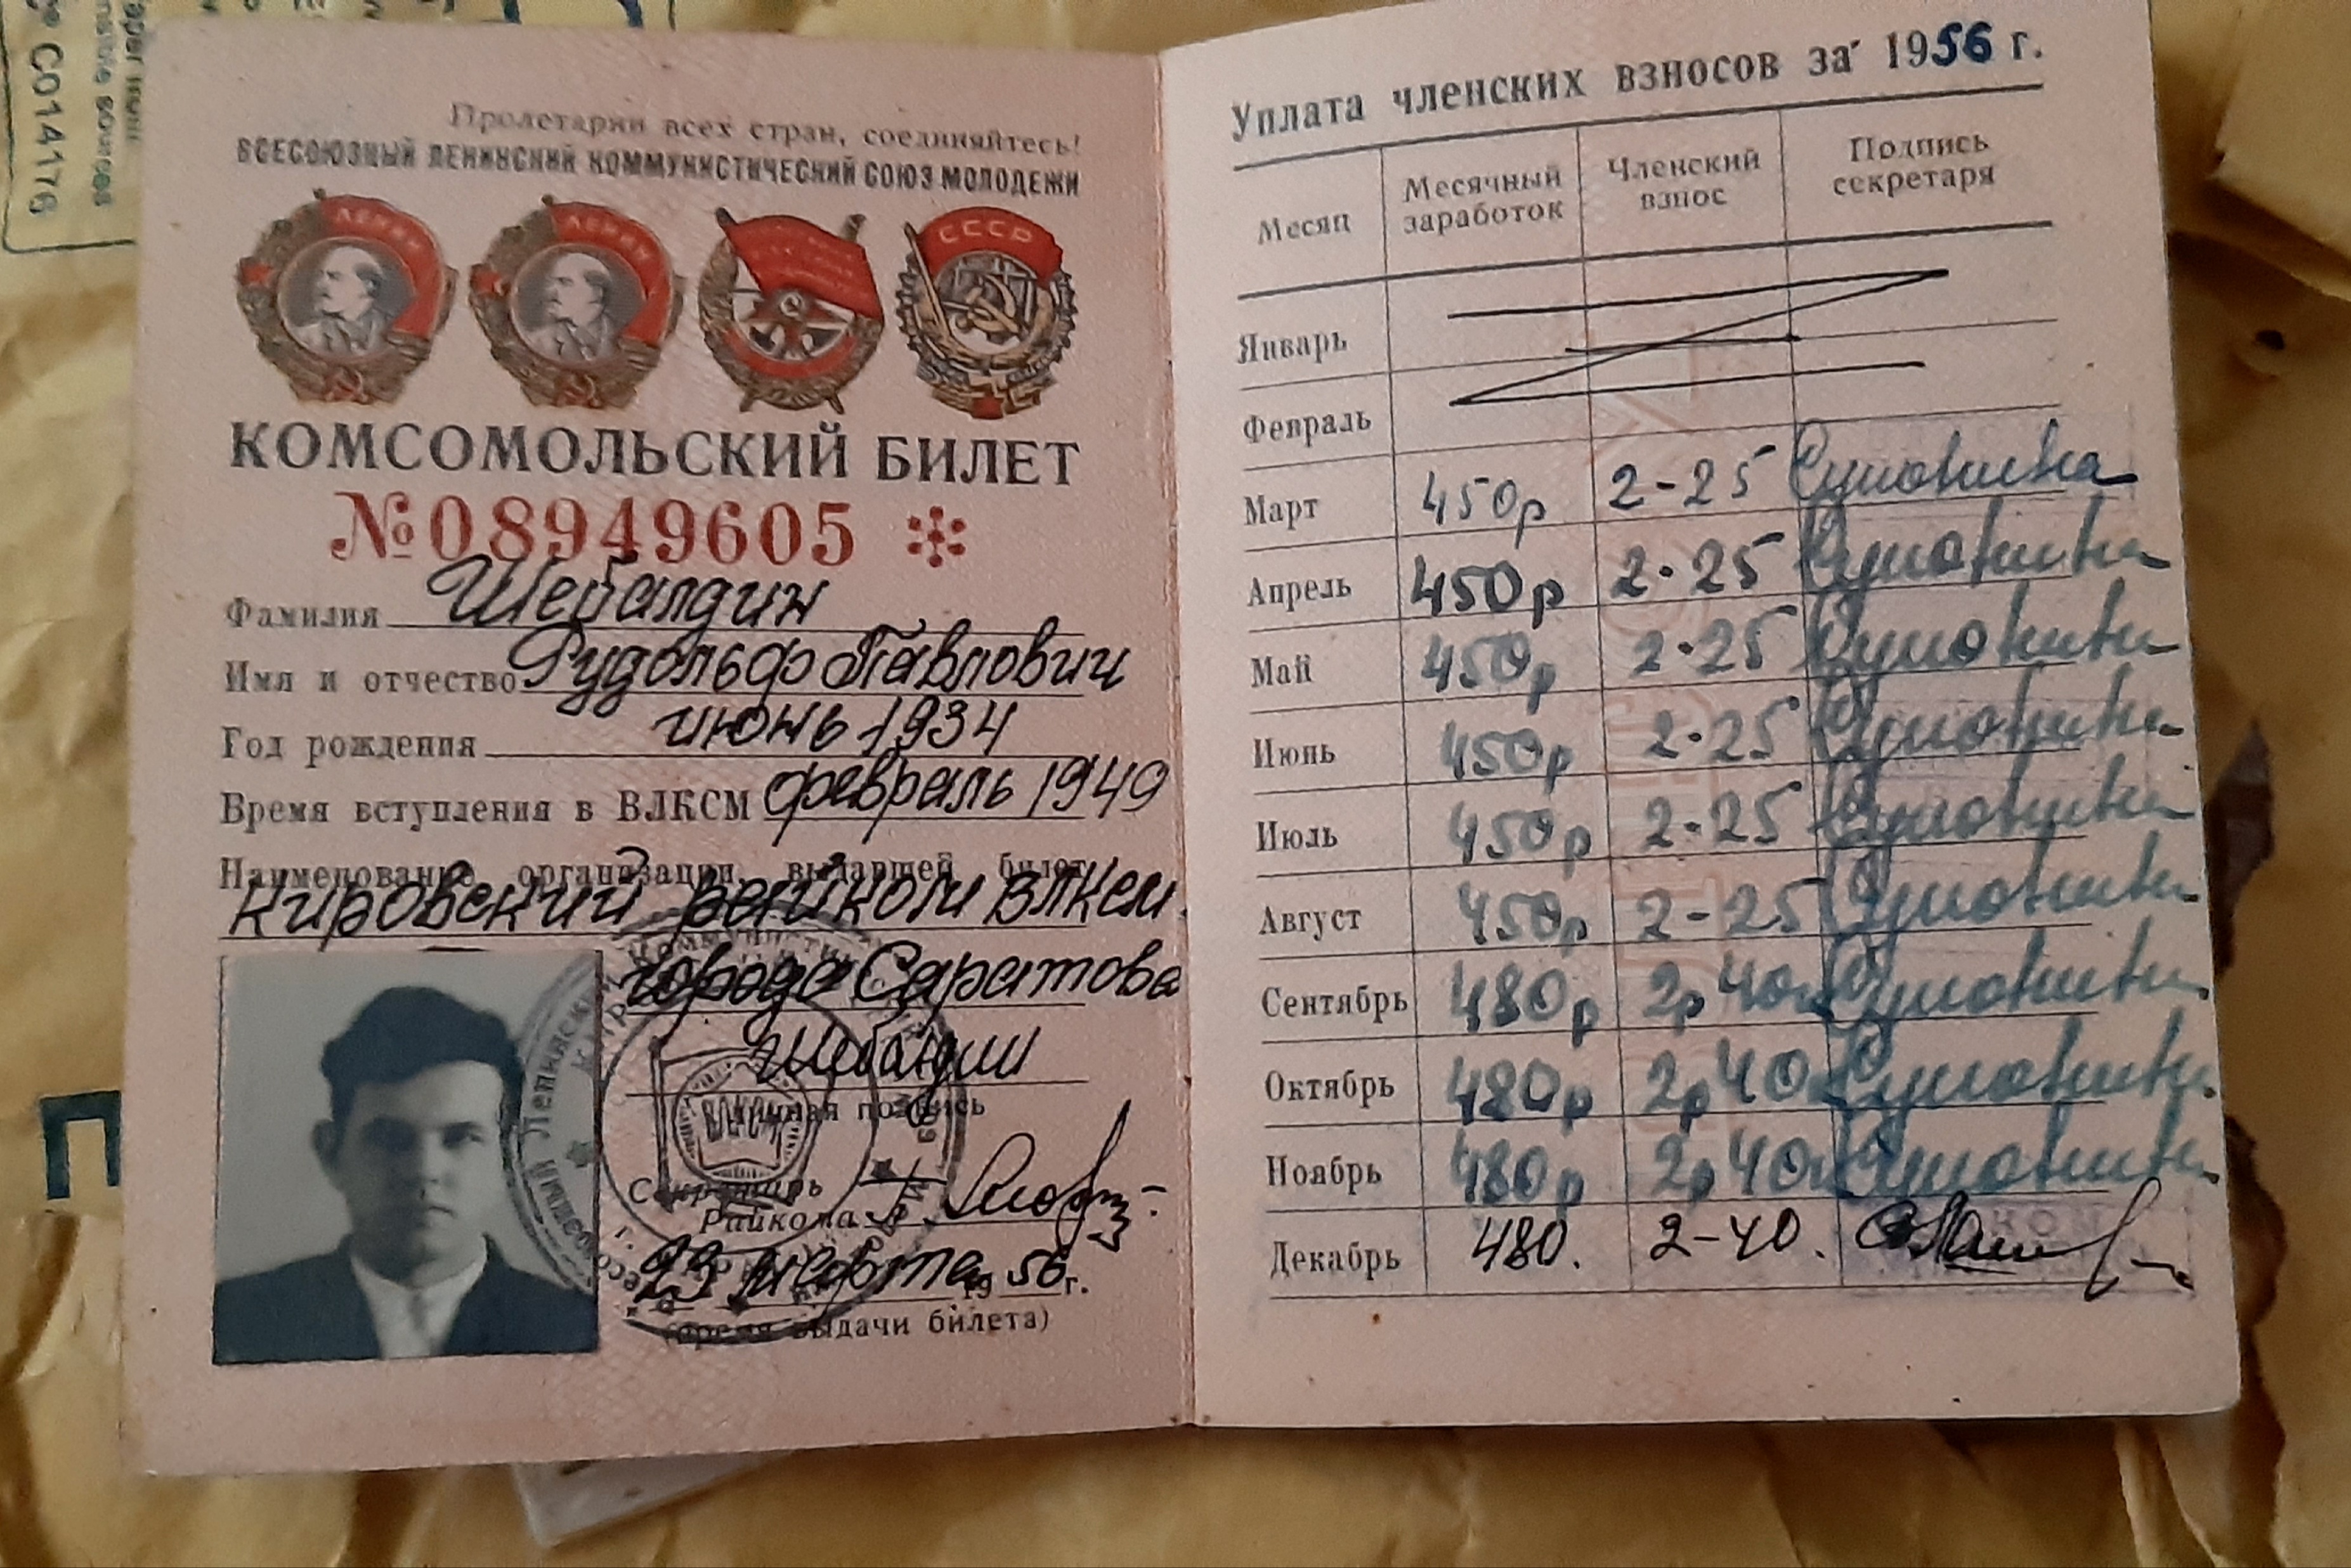 C014176
Пролетарии всех стран, соединяйтесь!
ВСЕСОЮЗНЫЙ ЛЕНИНСКИЙ КОММУНИСТИЧЕСКИЙ СОЮЗ МОЛОДЕЖИ
ЛЕНИН ЛЕНИН СССР
КОМСОМОЛЬСКИЙ БИЛЕТ
№08949605
Фамилия Шебалдин
Имя и отчество Рудольф Павлович
Год рождения июнь 1934
Время вступления в ВЛКСМ февраль 1949
Наименование организации, выдавшей билет
Кировский райком ВЛКСМ
города Саратова
Шебалдин
Личная подпись
ВЛКСМ
Секретарь
Райкома
23 марта 1956 г.
(время выдачи билета)
Уплата членских взносов за 1956 г.
Месяц Месячный заработок Членский взнос Подпись секретаря
Январь
Февраль
Март 450р 2-25
Апрель 450р 2-25
Май 450р 2-25
Июнь 450р 2-25
Июль 450р 2-25
Август 450р 2-25
Сентябрь 480р 2р40к
Октябрь 480р 2р40к
Ноябрь 480р 2р40к
Декабрь 480. 2-40.